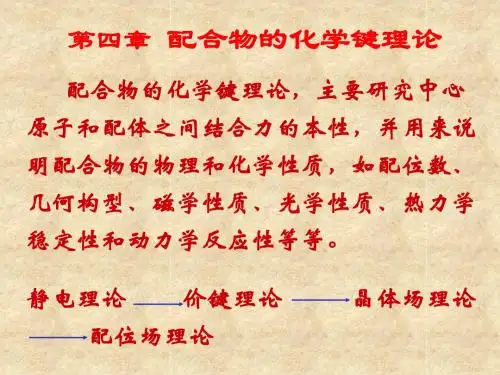 第四章 配合物的化学键理论
配合物的化学键理论，主要研究中心
原子和配体之间结合力的本性，并用来说
明配合物的物理和化学性质，如配位数、
几何构型、磁学性质、光学性质、热力学
稳定性和动力学反应性等等。
静电理论 价键理论 晶体场理论
配位场理论